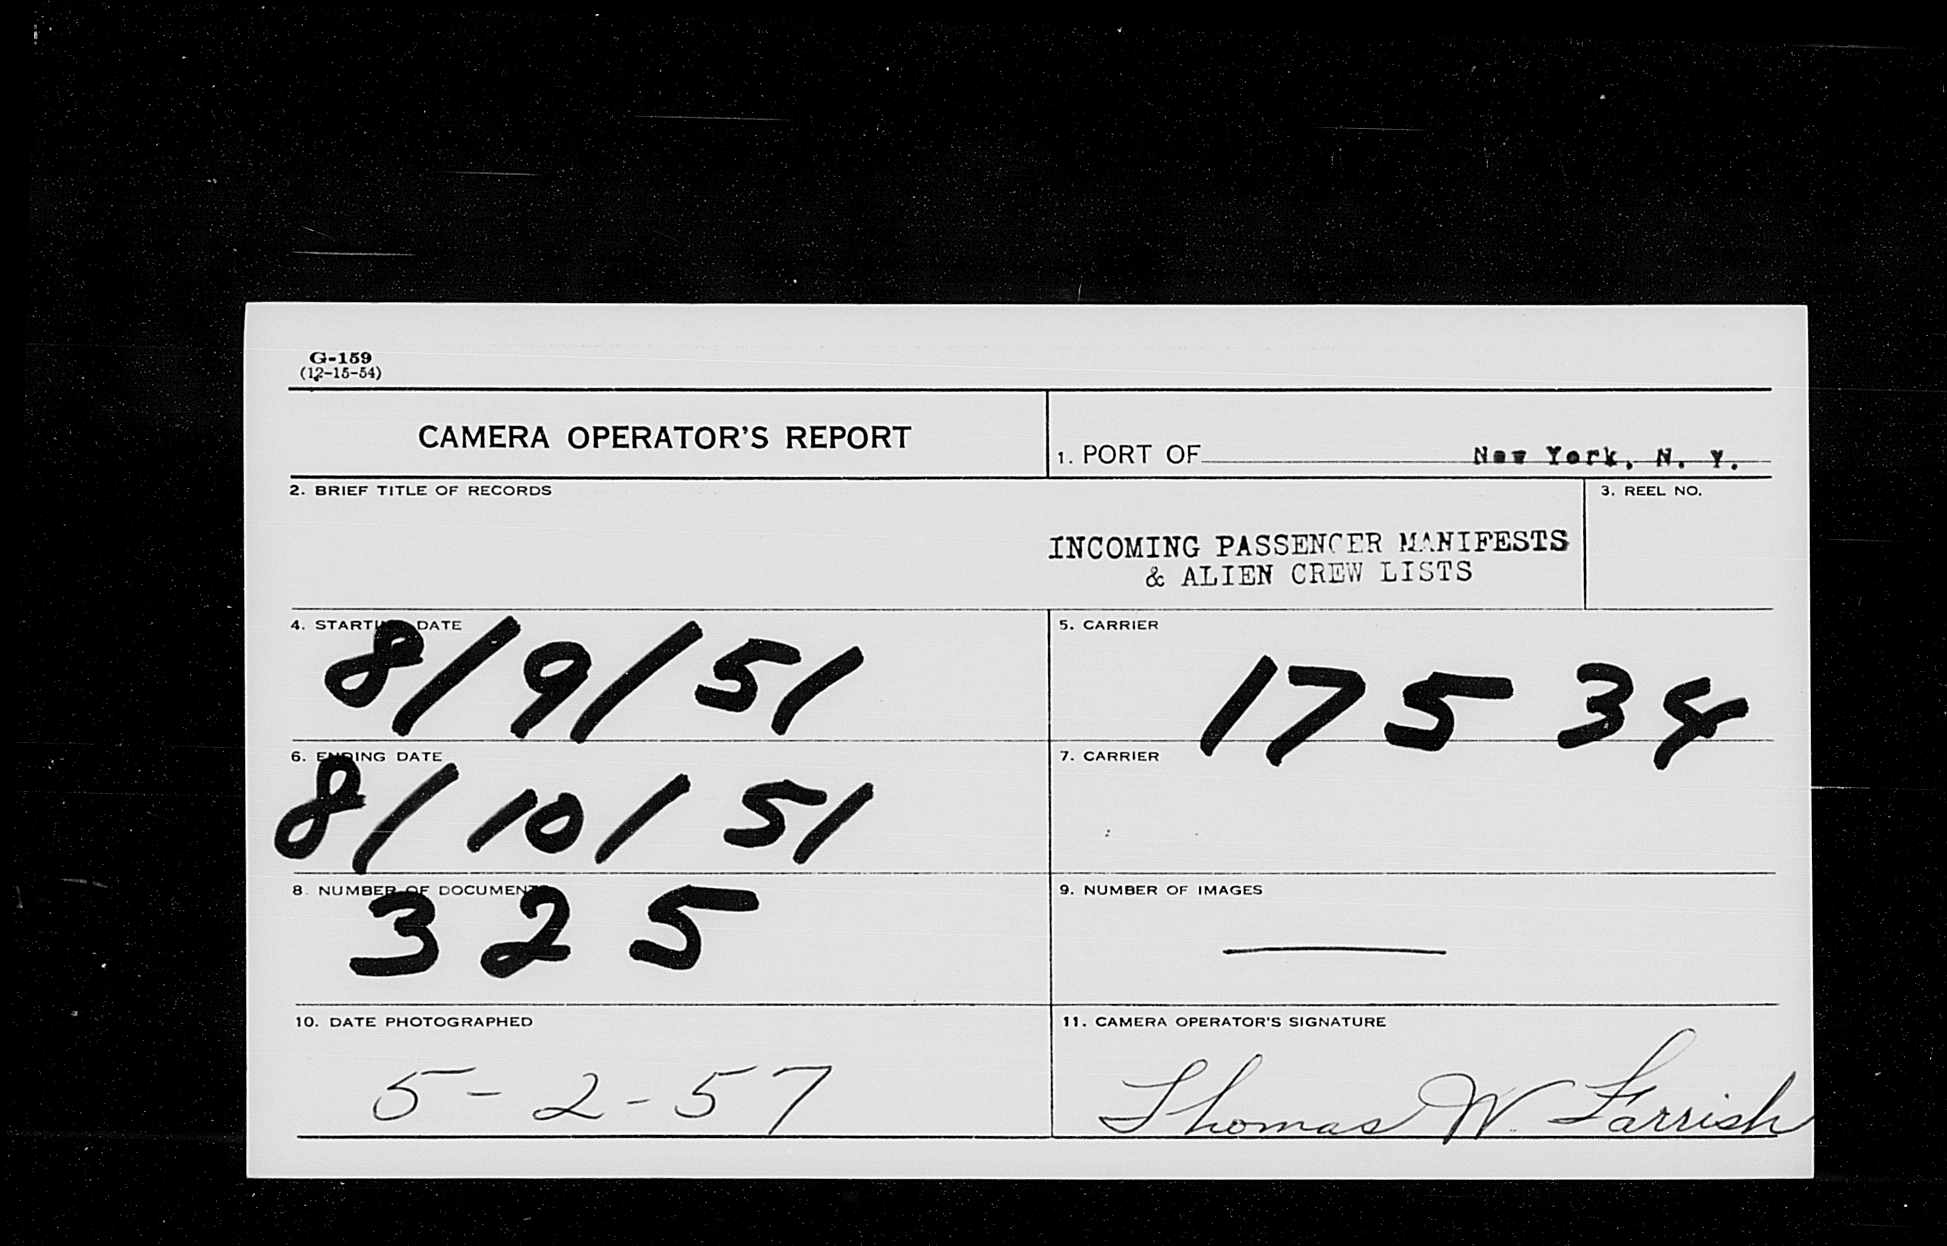 G-159
(12-15-54)
CAMERA OPERATOR'S REPORT
1. PORT OF New York, N. Y.
2. BRIEF TITLE OF RECORDS
3. REEL NO.
INCOMING PASSENGER MANIFESTS
& ALIEN CREW LISTS
4. STARTING DATE
8/9/51
5. CARRIER
17534
6. ENDING DATE
8/10/51
7. CARRIER
8. NUMBER OF DOCUMENTS
325
9. NUMBER OF IMAGES
—
10. DATE PHOTOGRAPHED
5-2-57
11. CAMERA OPERATOR'S SIGNATURE
Thomas W. Farrish